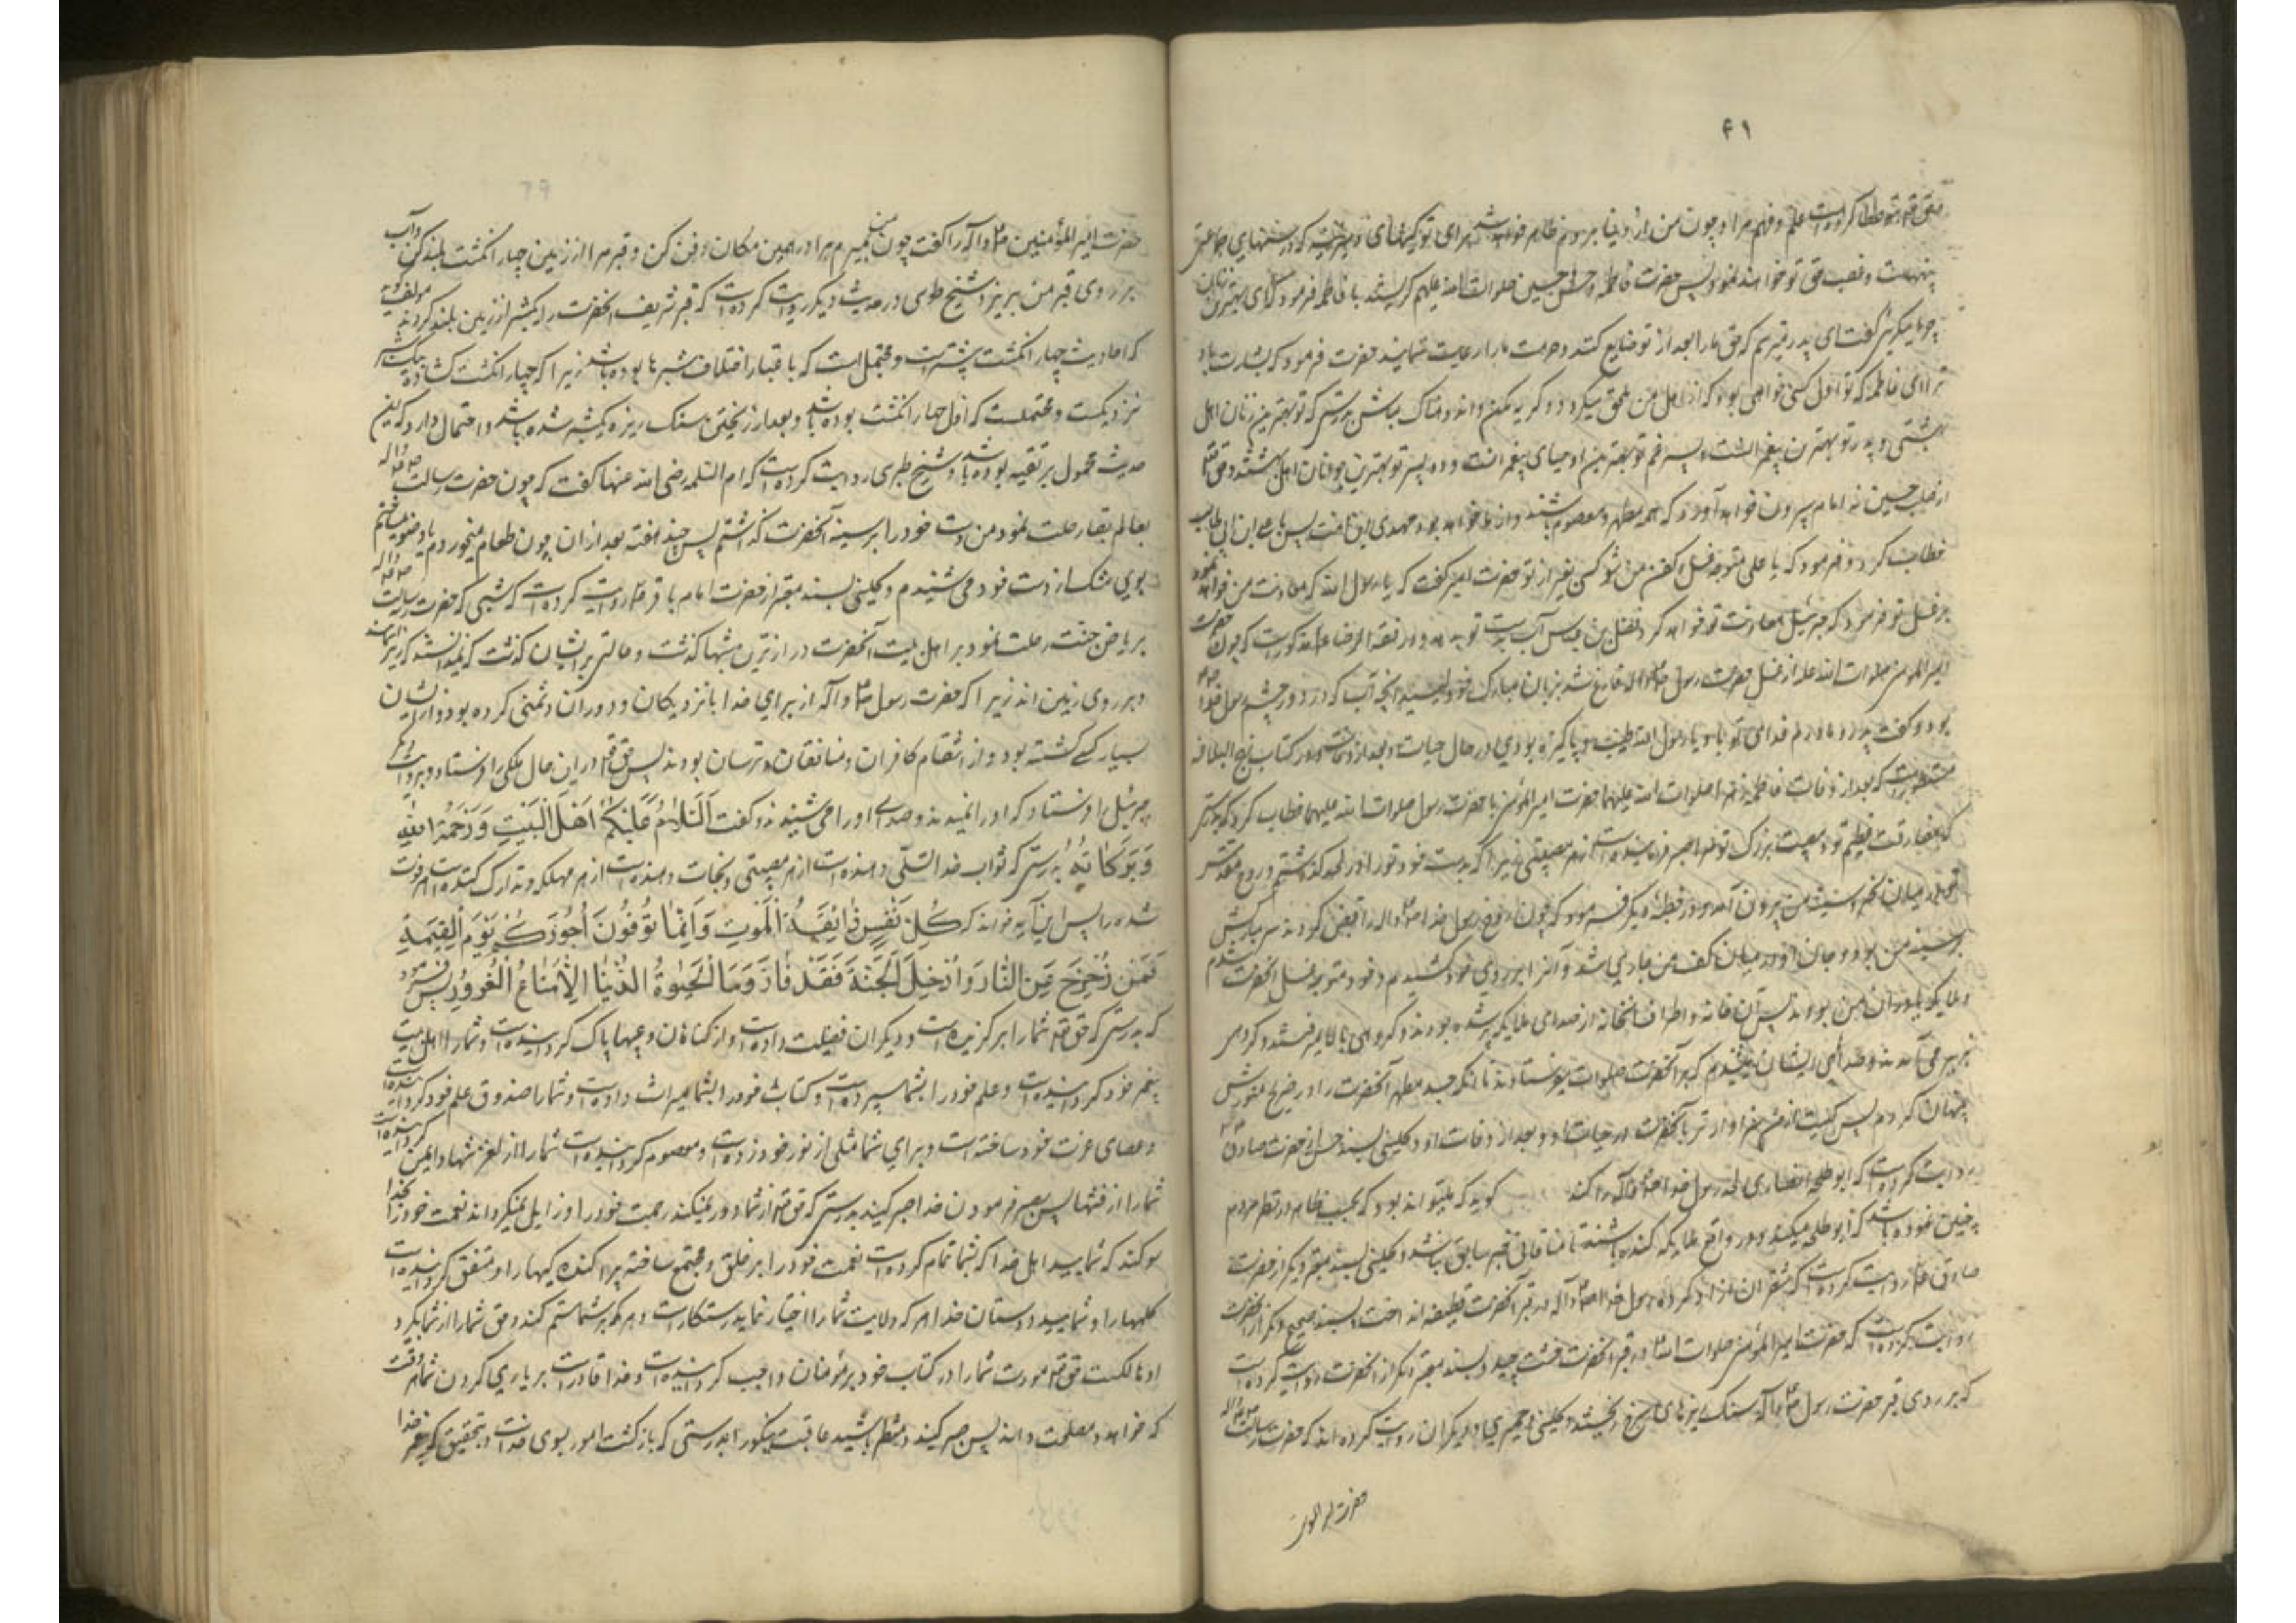 ۴۱
حق تعالی عطا کرده است علم و فهم مرا و چون من از دنیا بروم ظاهر خواهد شد برای تو کینهای دیرینه که در سینهای جماعتی
پنهانست و غصب حق تو خواهند نمود پس حضرت فاطمه و حسن و حسین صلوات الله علیهم گریستند با فاطمه فرمود که ای بهترین زنان
چرا میگریی گفت ای پدر میترسم که حق ما را بعد از تو ضایع کنند و حرمت ما را رعایت ننمایند حضرت فرمود که بشارت باد
ترا ای فاطمه که تو اول کسی خواهی بود که از اهل من بمن ملحق میگردد و گریه مکن و اندوهناک مباش بدرستی که تو بهترین زنان اهل
بهشتی و پدر تو بهترین پیغمبرانست و پسر عم تو بهترین اوصیای پیغمبرانست و دو پسر تو بهترین جوانان اهل بهشتند و حق تعالی
از صلب حسین نه امام بیرون خواهد آورد که همه مطهر و معصوم باشند و از ما خواهد بود مهدی این امت پس با علی ابن ابی طالب
خطاب کرد و فرمود که یا علی متوجه غسل و کفن من نشود کسی بغیر از تو حضرت امیر گفت که یا رسول الله که معاونت من خواهد نمود
بر غسل تو فرمود که جبرئیل معاونت تو خواهد کرد و فضل بن عباس آب بدست تو بدهد و در فقه الرضا علیه مذکور است که چون حضرت
امیر المومنین صلوات الله علیه از غسل حضرت رسول ص و اله فارغ شد بزبان مبارک خود لیسید آنچه آب که در دو چشم رسول خدا
بود و گفت پدر و مادرم فدای تو باد یا رسول الله طیب و پاکیزه بودی در حال حیات و بعد از وفات و در کتاب نهج البلاغه
مسطور است که بعد از وفات فاطمه زهرا صلوات الله علیها حضرت امیر المؤمنین با حضرت رسول صلوات الله علیهما خطاب کرد که بدرستی
که مفارقت عظیم تو و مصیبت بزرگ تو مرا صبر فرماینده است از هر مصیبتی زیرا که بدست خود تو را در لحد گذاشتم و روح مقدس
تو در میان نحر و سینه من بیرون آمد و در خطبه دیگر فرمود که چون روح رسول خدا ص و اله را قبض کردند سر مبارکش
بر سینه من بود و جان او در میان کف من جاری شد و آنرا بر روی خود کشیدم و خود متوجه غسل آنحضرت شدم
و ملایکه یاوران من بودند پس آن خانه و اطراف آنخانه از صدای ملایکه پر شده بودند و گروهی بالا میرفتند و گروهی
بزیر می آمدند و صدای ایشان میشنیدم که بر آنحضرت صلوات میفرستادند تا آنکه جسد مطهر آنحضرت را در ضریح منورش
پنهان کردم پس کیست از من سزاوارتر بآنحضرت در حیات او و بعد از وفات او و کلینی بسند حسن از حضرت صادق
روایت کرده است که ابو طلحه انصاری لحد رسول خدا ص و آله را کند گوید که میتواند بود که بحسب ظاهر در نظر مردم
چنین نموده باشد که ابو طلحه میکند و در واقع ملایکه کنده باشند تا منافاتی بخبر سابق نباشد و کلینی بسند معتبر دیگر از حضرت
صادق ع روایت کرده است که شقران آزاد کرده رسول خدا ص و آله در قبر آنحضرت قطیفه انداخت و بسند صحیح دیگر از آنحضرت
روایت کرده است که حضرت امیر المؤمنین صلوات الله در قبر آنحضرت خشت چید و بسند معتبر دیگر از آنحضرت روایت کرده است
که بر روی قبر حضرت رسول ص و آله سنگ ریزهای سرخ ریختند و کلینی و حمیری و دیگران روایت کرده اند که حضرت رسالت ص و اله
حضرت امیر المومنین
79
حضرت امیر المؤمنین ص و آله را گفت چون من بمیرم مرا در همین مکان دفن کن و قبر مرا از زمین چهار انگشت بلند کن و آب
بر روی قبر من بریز و شیخ طوسی در حدیث دیگر روایت کرده است که قبر شریف آنحضرت را یکشبر از زمین بلند کردند مولف گوید
که احادیث چهار انگشت بیشتر است و محتمل است که باعتبار اختلاف شبرها بوده باشد زیرا که چهار انگشت گشاده بیکشبر
نزدیکست و محتملست که اول چهار انگشت بوده باشد و بعد از ریختن سنگ ریزه یکشبر شده باشد و احتمال دارد که این
حدیث محمول بر تقیه بوده باشد و شیخ طبرسی روایت کرده است که ام السلمه رضی الله عنها گفت که چون حضرت رسالت ص و اله
بعالم بقا رحلت نمود من دست خود را بر سینه آنحضرت گذاشتم پس چند هفته بعد از آن چون طعام میخوردم یا وضو میساختم
بوی مشک از دست خود می شنیدم و کلینی بسند معتبر از حضرت امام باقر ع روایت کرده است که شبی که حضرت رسالت ص و اله
بریاض جنت رحلت نمود بر اهل بیت آنحضرت درازترین شبها گذشت و حالتی بر ایشان گذشت که نمیدانستند که زیر آسمانند
و بر روی زمین اند زیرا که حضرت رسول ص و آله از برای خدا با نزدیکان و دوران دشمنی کرده بود و از ایشان
بسیار کسی کشته بود و از انتقام کافران و منافقان ترسان بودند پس حق تعالی در این حال ملکی را فرستاد و بروایت دیگر
جبرئیل را فرستاد که او را نمیدیدند و صدای او را می شنیدند و گفت اَلسَّلامُ عَلَیْکُمْ اَهْلَ الْبَیْتِ وَ رَحْمَةُ اللهِ
وَ بَرَکاتُهُ بدرستی که ثواب خدا تسلی دهنده است از هر مصیبتی و نجات دهنده است از هر مهلکه و تدارک کننده است هر فوت
شده را پس این آیه خواند که کُلُّ نَفْسٍ ذائِقَةُ الْمَوْتِ وَ اِنَّما تُوَفَّوْنَ اُجُورَکُمْ یَوْمَ الْقِیمَةِ
فَمَنْ زُحْزِحَ عَنِ النّارِ وَ اُدْخِلَ الْجَنَّةَ فَقَدْ فازَ وَ مَا الْحَیوةُ الدُّنْیا اِلاّ مَتاعُ الْغُرُورِ پس فرمود
که بدرستی که حق تعالی شما را برگزیده است و دیگران فضیلت داده است و از گناهان و عیبها پاک گردانیده است و شما را اهل بیت
پیغمبر خود گردانیده است و علم خود را بشما سپرده است و کتاب خود را بشما میراث داده است و شما را صندوق علم خود گردانیده است
و عصای عزت خود ساخته است و برای شما مثلی از نور خود زده است و معصوم گردانیده است شما را از لغزشها و ایمن گردانیده است
شما را از فتنها پس بصبر فرمودن خدا صبر کنید بدرستی که حق تعالی از شما دور نمیکند رحمت خود را و زایل نمیگرداند نعمت خود را بخدا
سوگند که شمایید اهل خدا که بشما تمام کرده است نعمت خود را بر خلق و مجتمع ساخته پراکنده گیها را و متفق گردانیده است
کلمها را و شمایید دوستان خدا هر که ولایت شما را اختیار نماید رستگار است و هر که بر شما ستم کند و حق شما را از شما بگیرد
او هالکست حق تعالی مودت شما را در کتاب خود بر مؤمنان واجب گردانیده است و خدا قادر است بر یاری کردن شما هر وقت
که خواهد و مصلحت داند پس صبر کنید و منتظر باشید عاقبت نیکو را بدرستی که بازگشت امور بسوی خداست و بتحقیق که پیغمبر خدا